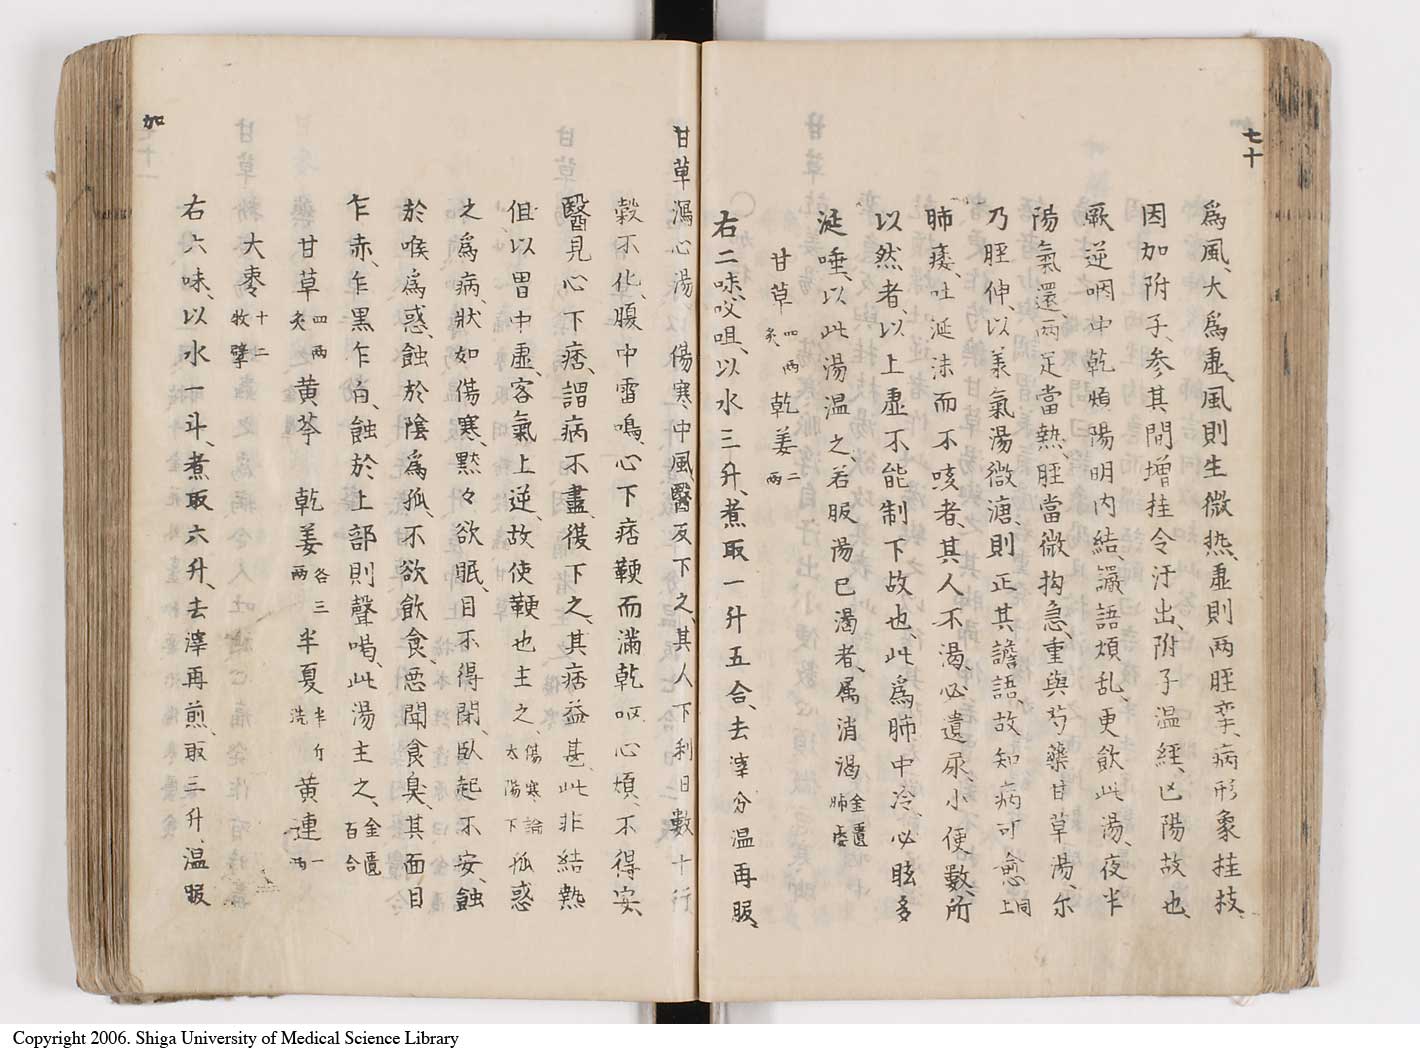 七十
為風、大為虚、風則生微热、虚則両脛挛、病形象挂枝、
因加附子、参其間增挂令汗出、附子温經、亡陽故也、
厥逆咽中乾煩、陽明内結、讝語煩乱、更飲此湯、夜半
陽氣還、両足當熱、脛當微拘急、重與芍藥甘草湯、尓
乃脛伸以羕氣湯微溏、則正其譫語、故知病可愈 同上
肺痿、吐涎沫而不咳者、其人不渴、必遺尿、小便數、所
以然者、以上虚不能制下故也、此為肺中冷、必眩多
涎唾、以此湯温之、若服湯已渴者、属消渴 金匱肺痿
甘草 四両炙 乾姜 二両
右二味、㕮咀、以水三升、煮取一升五合、去滓分温再服、
甘草瀉心湯 傷寒中風、醫反下之、其人下利日數十行
穀不化、腹中雷鳴、心下痞鞕而滿、乾呕心煩、不得安、
醫見心下痞、謂病不盡、復下之、其痞益甚、此非結熱
但以胃中虚、客氣上逆、故使鞕也主之、 傷寒論太陽下 狐惑
之為病、狀如傷寒、黙々欲眠、目不得閉、臥起不安、蝕
於喉為惑、蝕於陰為狐、不欲飲食、悪聞食臭、其面目
乍赤、乍黒乍白、蝕於上部則聲喝、此湯主之、 金匱百合
甘草 四両炙 黄芩 乾姜 各三両 半夏 半斤洗 黄連 一両
大枣 十二枚擘
右六味、以水一斗、煮取六升、去滓再煎、取三升、温服
加
Copyright 2006. Shiga University of Medical Science Library